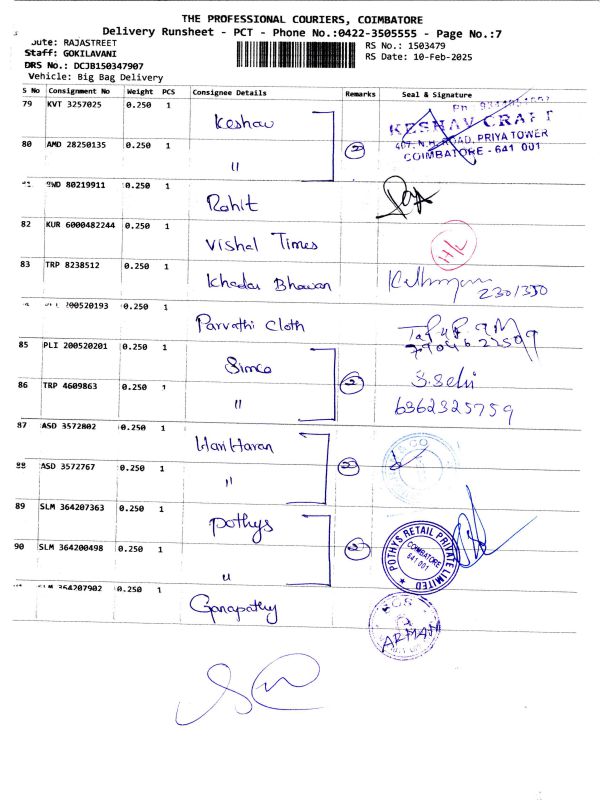 THE PROFESSIONAL COURIERS, COIMBATORE
Delivery Runsheet - PCT - Phone No.:0422-3505555 - Page No.:7
RAJASTREET
RS No.: 1503479
Staff: GOKILAVANI
RS Date: 10-Feb-2025
DRS No.: DCJB150347907
Vehicle: Big Bag Delivery
S No Consignment No Weight PCS Consignee Details Remarks Seal & Signature
79 KVT 3257025 0.250 1 Keshav
KESHAV CRAFT
407, N.H. ROAD, PRIYA TOWER
COIMBATORE - 641 001
80 AMD 28250135 0.250 1 " 2
80219911 0.250 1 Rohit
82 KUR 6000482244 0.250 1 Vishal Times
83 TRP 8238512 0.250 1 Khadar Bhavan
2301350
200520193 0.250 1 Parvathi Cloth
85 PLI 200520201 0.250 1 Simco
86 TRP 4609863 0.250 1 " 2
S.Selvi
6362325759
87 ASD 3572802 0.250 1 Hari Haran
88 ASD 3572767 0.250 1 " 2
89 SLM 364207363 0.250 1 Pothys
90 SLM 364200498 0.250 1 " 2
POTHYS RETAIL PRIVATE LIMITED
COIMBATORE
641 001
364207902 0.250 1 Ganapathy